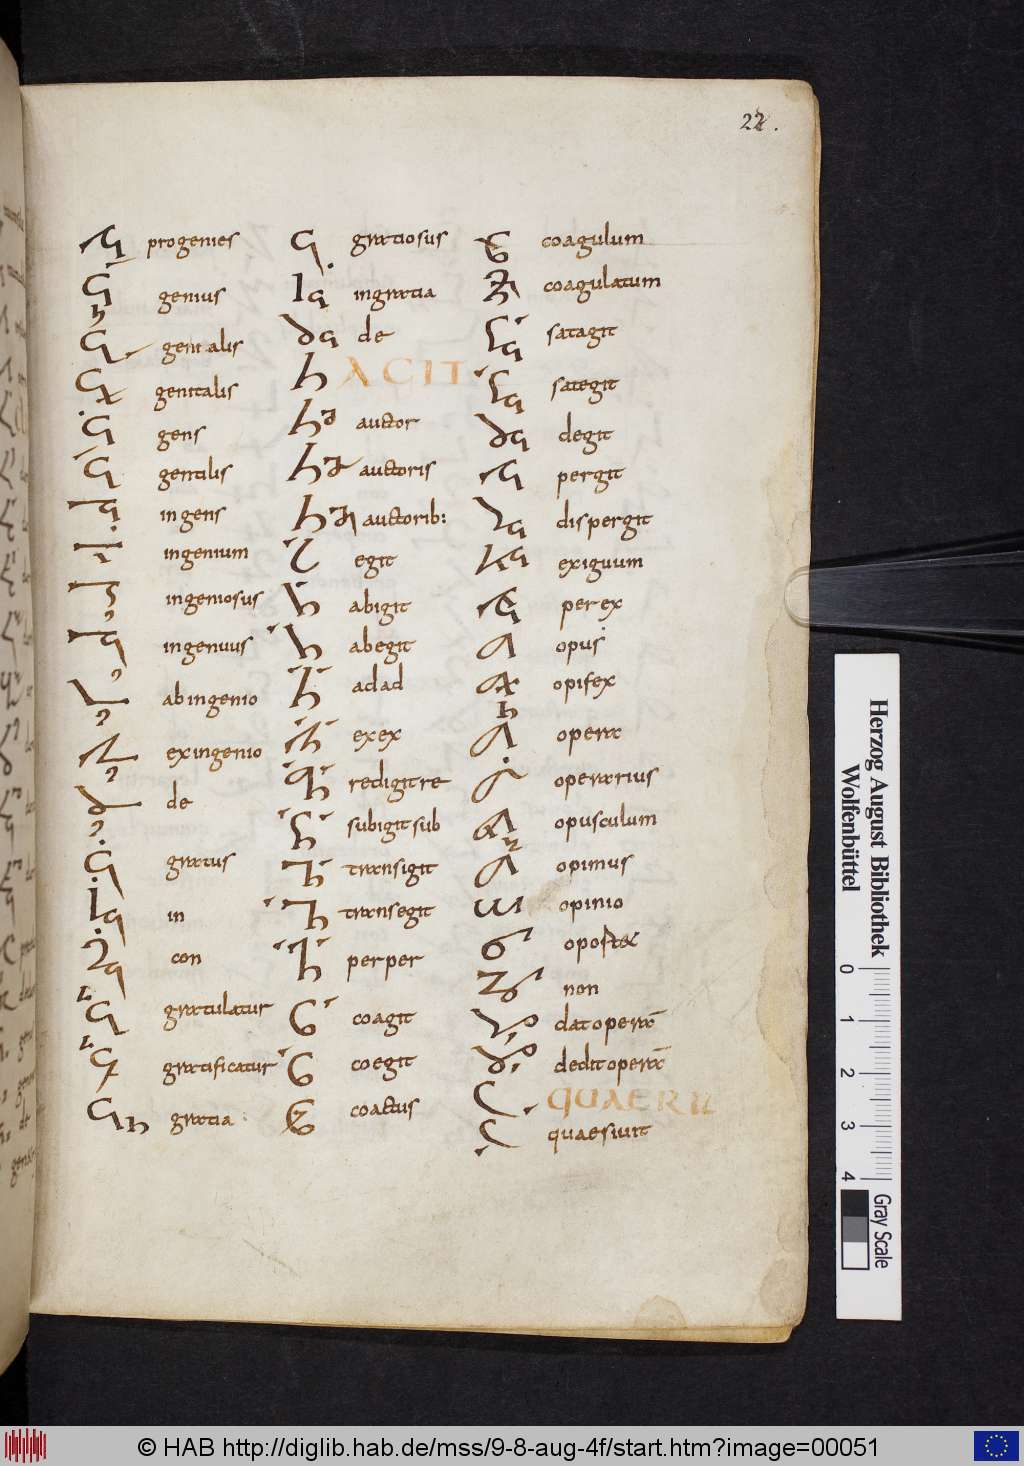 22.
progenies
genius
genialis
genitalis
gens
gentilis
ingens
ingenium
ingeniosus
ingenuus
abingenio
exingenio
de
gratus
in
con
gratulatur
gratificatur
gratia
gratiosus
ingratia
de
AGIT
auctor
auctoris
auctorib:
egit
abigit
abegit
adad
exex
redigitre
subigitsub
transigit
transegit
perper
coagit
coegit
coactus
coagulum
coagulatum
satagit
sategit
degit
pergit
dispergit
exiguum
perex
opus
opifex
opera
operarius
opusculum
opimus
opinio
oportet
non
datoperā
deditoperā
QUAERIT
quaesiuit
Herzog August Bibliothek
Wolfenbüttel
0 1 2 3 4
Gray Scale
© HAB http://diglib.hab.de/mss/9-8-aug-4f/start.htm?image=00051